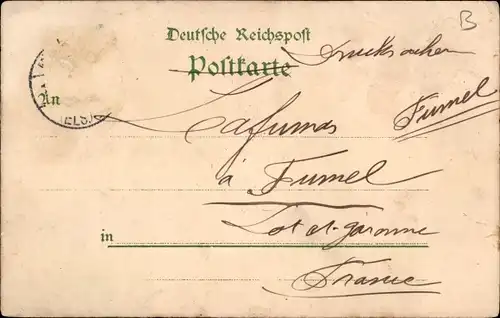 B
Deutsche Reichspost
Postkarte Drucksachen
An
Lafumas Fumel
à Fumel
in Lot et-garonne
France